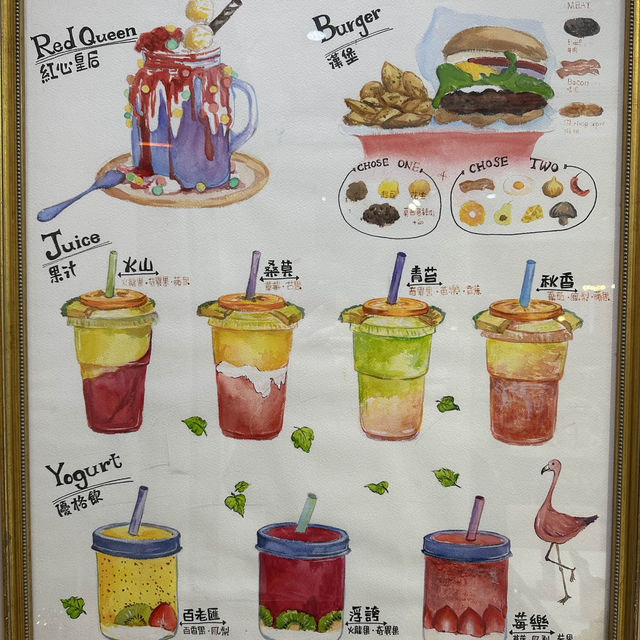 Red Queen
紅心皇后
Burger
漢堡
MEAT
Bacon
CHOSE ONE
+
CHOSE TWO
Juice
果汁
火山
火龍果・奇異果・蘋果
桑莫
青苔
奇異果・芭樂・香蕉
秋香
Yogurt
優格飲
百老匯
百香果・鳳梨
浮誇
火龍果・奇異果
莓樂